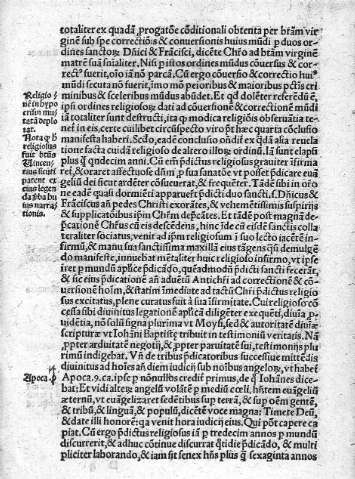 totaliter ex quadã, progatõe cõditionali obtenta per btãm vir
gine sub spe correctiõis & conuersionis huius mũdi p duos or
dines sanctoꝝ Dñici & Frãcisci, dicẽte Chřo ad btãm virginẽ
matrẽ suã saialiter, Nisi p istos ordines mũdus cõuersus & cor
rectꝰ fuerit, oĩo iã nõ parcã. Cũ ergo cõuersio & correctio huiꝰ
mũdi secuta nõ fuerit, imo mõ peioribus & maioribus pctis cri
minibus & sceleribus mũdus abũdet. Et qd dolẽter referẽdũ ẽ,
ipsi ordines religiosoꝝ dati ad cõuersionẽ & correctionẽ mũdi
iã totaliter sunt destructi, ita ꝙ modica religiõis obseruãtia te
net in eis, certe cuilibet circũspecto viro pt hæc quarta cõclusio
manifesta haberi. Scďo, eadẽ conclusio oñdit ex qdã alia reuela
tione facta cuidã religioso de altero illoꝝ ordinũ.
plus ꝙ vndecim anni. Cũ em p̃dictus religiosus grauiter ifirma
ret, & oraret affectuose
geliũ dei sicut ardẽter cõsueuerat, & frequẽter. Tãdẽ sibi in ora
ne eadẽ quasi dormiẽti apparuerũt p̃dicti duo sancti, s. Dñicus &
Frãciscus añ pedes Christi exorãtes, & vehemẽtissimis suspiriis
& supplicatõibus ipm Chřm depcãtes. Et tãdẽ post magnã de
pcationẽ Chřus cũ eis descẽdens, hinc ĩde cũ eisdẽ sanctis colla
teraliter sociatus, venit ad ipm religiosum ĩ suo lecto iacẽtẽ in
firmũ, & manu sua sanctissima maxillã eius tãgens
do manifeste, innuebat mẽtaliter huic religioso infirmo, vt ipse
iret p mundũ aplice p̃dicãdo, quẽadmodũ p̃dicti sancti fecerãt,
& sic eius p̃dicationẽ añ aduẽtũ Antichristi ad correctionẽ & cõ
uersionẽ hoĩm, & statim ĩmediate ad tactũ Chři p̃dictus religio
sus excitatus, plene curatus fuit à sua ĩfirmitate. Cui religioso cõ
cessa sibi diuinitus legationẽ aplicã diligẽter exequẽti, diuĩa p
uidẽtia, nõ solũ signa plurima vt Moysi, sed & autoritatẽ diuiæ
scripturæ vt Iohãni Baptistę tribuit in testimoniũ veritatis. Nã
ppter arduitatẽ negotii, & ppter paruitatẽ sui, testimoniis pluri
rimũ indigebat. Vñ de tribus p̃dicatoribus successiue mittẽdis
diuinitus ad hoĩes añ diem iudicii sub noĩbus angeloꝝ, vt habet
Apoca.9.ca. ipse p nõnullos credit primus, de ꝗ Iohãnes dice
bat; Et vidi alterꝝ angelũ volãtẽ p mediũ cœli, hñtẽm euangeliũ
æternũ, vt euangelizaret sedẽtibus sup terrã, & sup oẽm gentẽ,
& tribũ, & linguã, & populũ, dicẽtẽ voce magna: Timete Deũ,
& date illi honorẽ: qa venit hora iudicii eius. Qui põt capere ca
piat. Cũ ergo p̃dictus religiosus iã p tredecim annos p mundũ
discurrerit, & adhuc cõtinue discurrat qtidie p̃dicãdo, & multi
pliciter laborando, & iam sit senex hñs plus ꝗ sexaginta annos
Religio
nẽ in hypo
crisin mu
tatã deplo
rat.
Nota ꝙ b
religiosus
fuit brũs
Vincen
tius sicuti
patet ex
eius legen
da p̃ba hui
ius narra
tionis.
Apoca.9